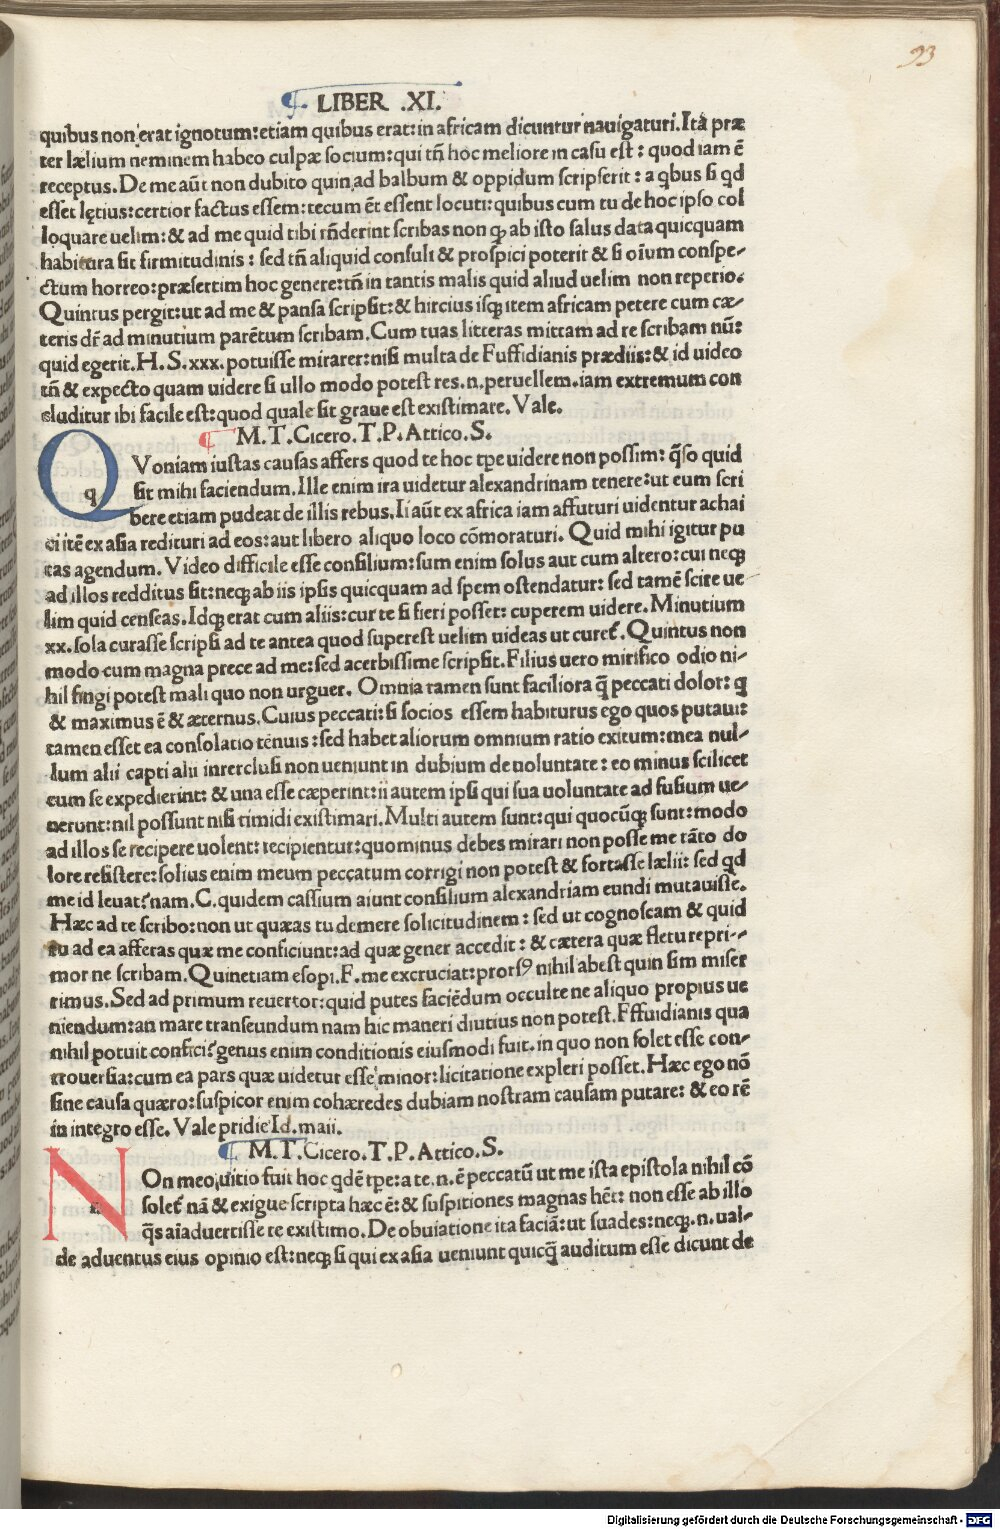 93
¶ LIBER .XI.
quibus non erat ignotum:etiam quibus erat:in africam dicuntur nauigaturi.Ita præ
ter lælium neminem habeo culpæ socium:qui tñ hoc meliore in casu est : quod iam ē
receptus.De me aūt non dubito quin ad balbum & oppidum scripserit : a qbus si qd
esset lętius:certior factus essem:tecum ēt essent locuti:quibus cum tu de hoc ipso col
loquare uelim:& ad me quid tibi rñderint scribas non qꝫ ab isto salus data quicquam
habitura sit firmitudinis : sed tñ aliquid consuli & prospici poterit & si oīum conspe-
ctum horreo:præsertim hoc genere:tñ in tantis malis quid aliud uelim non reperio.
Quintus pergit:ut ad me & pansa scripsit:& hircius isqꝫ item africam petere cum cæ-
teris dr̄ ad minutium parētum scribam.Cum tuas litteras mittam ad te scribam nū:
quid egerit.H.S.xxx.potuisse mirarer:nisi multa de Fuffidianis prædiis:& id uideo
tñ & expecto quam uidere si ullo modo potest res.n.peruellem.iam extremum con
cluditur ibi facile est:quod quale sit graue est existimare.Vale.
¶ M.T.Cicero.T.P.Attico.S.
QVoniam iustas causas affers quod te hoc tpe uidere non possim: q̄so quid
q sit mihi faciendum.Ille enim ita uidetur alexandrinam tenere:ut eum scri
bere etiam pudeat de illis rebus.Ii aūt ex africa iam affuturi uidentur achai
ci itē ex asia redituri ad eos:aut libero aliquo loco cōmoraturi. Quid mihi igitur pu
tas agendum. Video difficile esse consilium:sum enim solus aut cum altero:cui neqꝫ
ad illos redditus sit:neqꝫ ab iis ipsis quicquam ad spem ostendatur: sed tamē scire ue-
lim quid censeas.Idqꝫ erat cum aliis:cur te si fieri posset: cuperem uidere.Minutium
xx.sola curasse scripsi ad te antea quod superest uelim uideas ut cureť.Quintus non
modo cum magna prece ad me:sed acerbissime scripsit.Filius uero mirifico odio ni-
hil fingi potest mali quo non urguer. Omnia tamen sunt faciliora q̄ peccati dolor: q
& maximus ē & æternus.Cuius peccati:si socios essem habiturus ego quos putaui:
tamen esset ea consolatio tenuis :sed habet aliorum omnium ratio exitum:mea nul-
lum alii capti alii interclusi non ueniunt in dubium de uoluntate : eo minus scilicet
cum se expedierint: & una esse cæperint:ii autem ipsi qui sua uoluntate ad fusium ue-
nerunt:nil possunt nisi timidi existimari.Multi autem sunt:qui quocūqꝫ sunt:modo
ad illos se recipere uolent:recipientur:quominus debes mirari non posse me tāto do
lore resistere:solius enim meum peccatum corrigi non potest & fortasse lælii: sed qd
me id leuat?nam.C.quidem cassium aiunt consilium alexandriam eundi mutauisse.
Hæc ad te scribo:non ut quæas tu demere solicitudinem: sed ut cognoscam & quid
tu ad ea afferas quæ me conficiunt:ad quæ gener accedit : & cætera quæ fletu repri-
mor ne scribam.Quinetiam esopi.F.me excruciat:prorsꝰ nihil abest quin sim miser
rimus.Sed ad primum reuertor:quid putes faciēdum occulte ne aliquo propius ue
niendum:an mare transeundum nam hic maneri diutius non potest.Fffuidianis qua
nihil potuit confici?genus enim conditionis eiusmodi fuit.in quo non solet esse con-
trouersia:cum ea pars quæ uidetur esse minor:licitatione expleri posset.Hæc ego nō
sine causa quæro:suspicor enim cohæredes dubiam nostram causam putare: & eo rē
in integro esse. Vale pridie Id.maii.
¶ M.T.Cicero.T.P.Attico.S.
NOn meo uitio fuit hoc qdē tpe:a te.n.ē peccatū ut me ista epistola nihil cō
n soleť nā & exigue scripta hæc ē:& suspitiones magnas hēt: non esse ab illo
q̄s aīaduertisse te existimo.De obuiatione ita faciā:ut suades:neqꝫ.n.ual-
de aduentus eius opinio est:neqꝫ si qui ex asia ueniunt quicq̄ auditum esse dicunt de
Digitalisierung gefördert durch die Deutsche Forschungsgemeinschaft - DFG